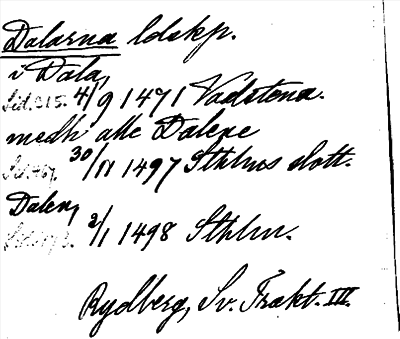 Dalarna ldskp.
i Dala,
Sid. 315. 4/9 1471 Vadstena.
medh alle Dalene
30/11 1497 Sthlms slott.
Dalen,
2/1 1498 Sthlm.
Rydberg, Sv. Trakt. III.